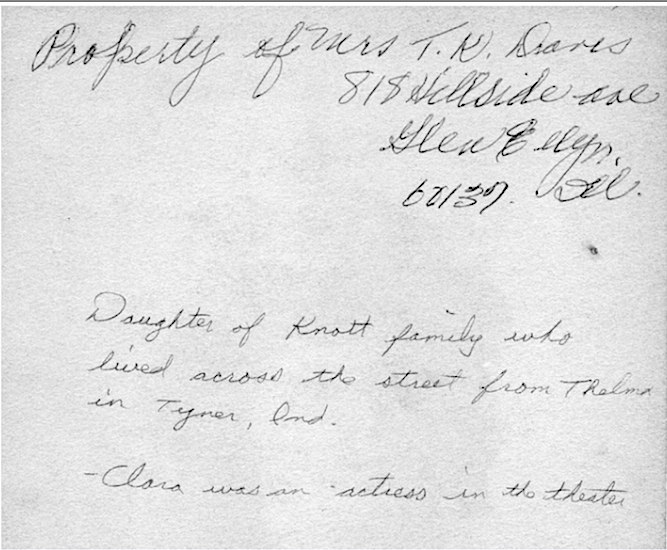 Property of Mrs T. K. Davis
818 Hillside ave
Glen Ellyn,
60137. Ill.
Daughter of Knott family who
lived across the street from Thelma
in Tyner, Ind.
-Clara was an actress in the theater